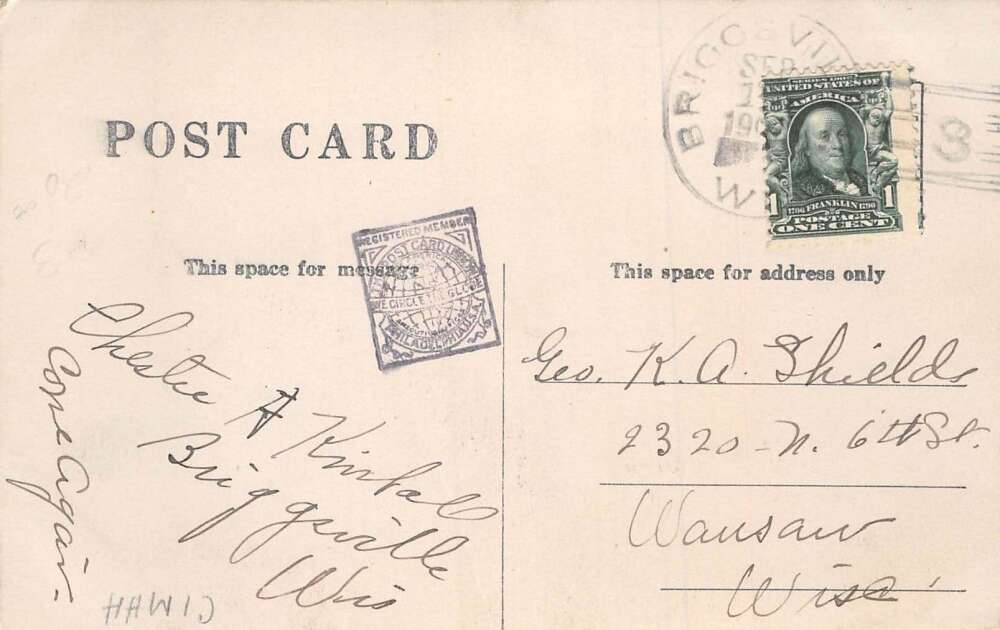 POST CARD
This space for message
This space for address only
BRIGGSVILLE
SEP
190
W
3
SERIES 1902
UNITED STATES OF
AMERICA
1 1
1706 FRANKLIN 1790
POSTAGE
ONE CENT
REGISTERED MEMBER
POST CARD UNION
WE CIRCLE THE GLOBE
PHILADELPHIA U.S.A.
Chester A Kimball
Briggsville
Wis
Come Again
Geo. K. A. Shields
2320 N. 6th St.
Wausau
Wisc.